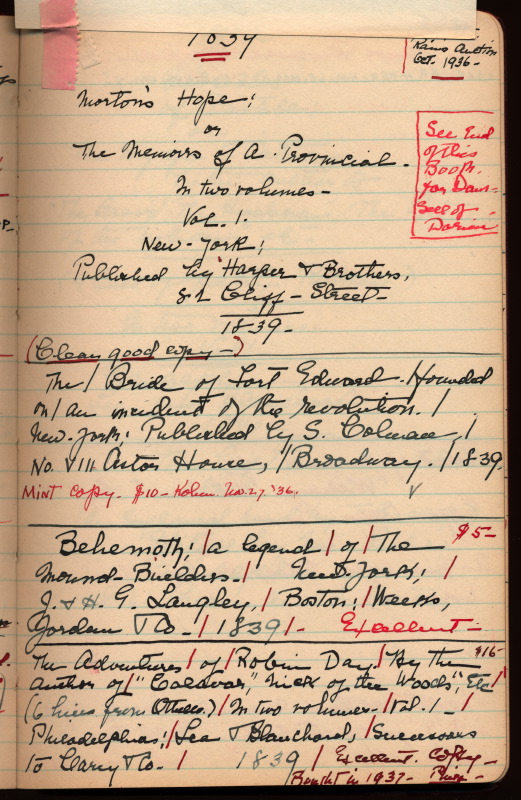 1839
Rains Auction
Oct. 1936-
Morton's Hope;
or
The Memoirs of A. Provincial.
In two volumes-
Vol. 1.
New-York;
Published by Harper & Brothers,
82 Cliff-Street-
1839-
See End
of This
Book.
for Dam-
sell of
Darien
(Clean good copy-)
The / Bride of Fort Edward. / founded
on / an incident of the revolution. /
New-York; Published by S. Colman, /
No. VIII Astor House, / Broadway. / 1839.
Mint copy. $10- Kohn. Nov. 27 '36.
Behemoth; / a legend / of / The $5-
Mound-Builders. / New-York; /
J. & H. G. Langley, / Boston; / Weeks,
Jordan & Co- / 1839 / - Excellent-
The Adventures / of / Robin Day. / By the $15-
author of / "Calavar," "Nick of the Woods", Etc /
(6 lines from Othello.) / In two volumes. / Vol. 1- /
Philadelphia; / Lea & Blanchard, / Successors
to Carey & Co. / 1839 / Excellent. Copy-
Bought in 1937-